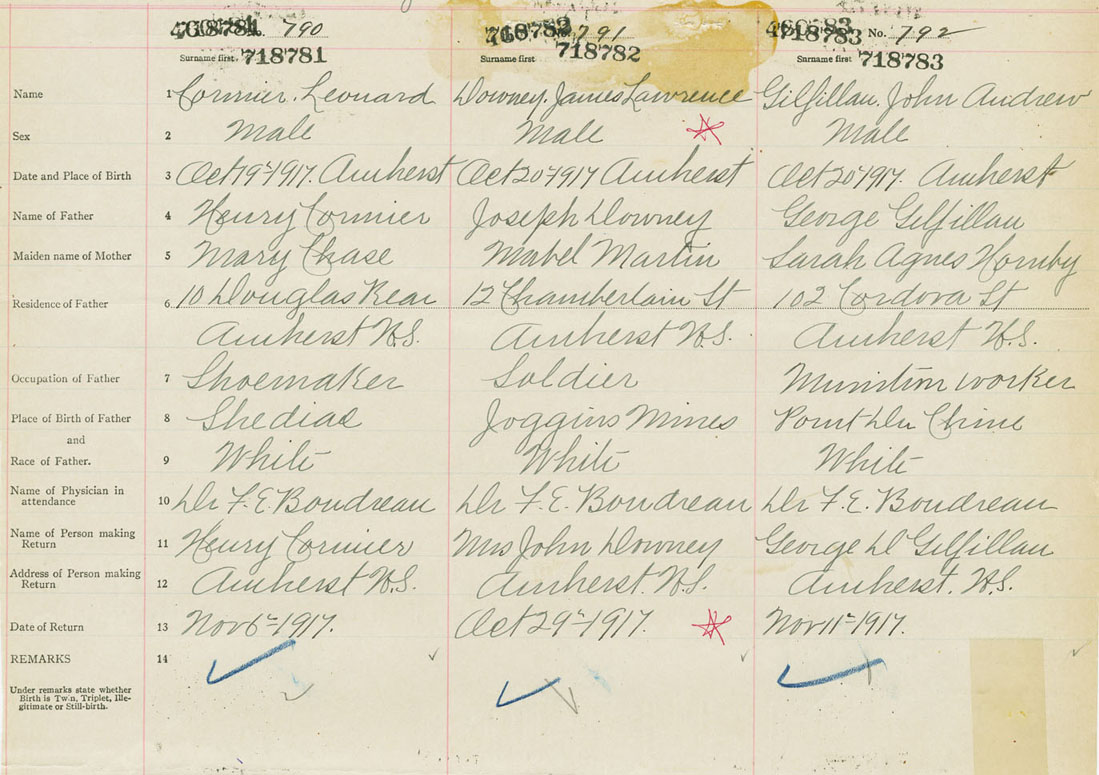 No. 790 791 No. 792
718781 718782 718783
Surname first. Surname first Surname first
Name 1 Cormier. Leonard Downey. James Lawrence Gilfillan. John Andrew
Sex 2 Male Male Male
Date and Place of Birth 3 Oct 19th 1917. Amherst Oct 20th 1917 Amherst Oct 20th 1917. Amherst
Name of Father 4 Henry Cormier Joseph Downey George Gilfillan
Maiden name of Mother 5 Mary Chase Mabel Martin Sarah Agnes Hornby
Residence of Father 6 10 Douglas Rear 12 Chamberlain St 102 Cordova St
Amherst N.S. Amherst N.S. Amherst N.S.
Occupation of Father 7 Shoemaker Soldier Munition worker
Place of Birth of Father 8 Shediac Joggins Mines Point Du Chine
and
Race of Father. 9 White White White
Name of Physician in
attendance 10 Dr F. E. Boudreau Dr F. E. Boudreau Dr F. E. Boudreau
Name of Person making
Return 11 Henry Cormier Mrs John Downey George D Gilfillan
Address of Person making
Return 12 Amherst N.S. Amherst. N.S. Amherst. N.S.
Date of Return 13 Nov 6th 1917. Oct 29th 1917. Nov 11th 1917.
REMARKS 14
Under remarks state whether
Birth is Twin, Triplet, Ille-
gitimate or Still-birth.